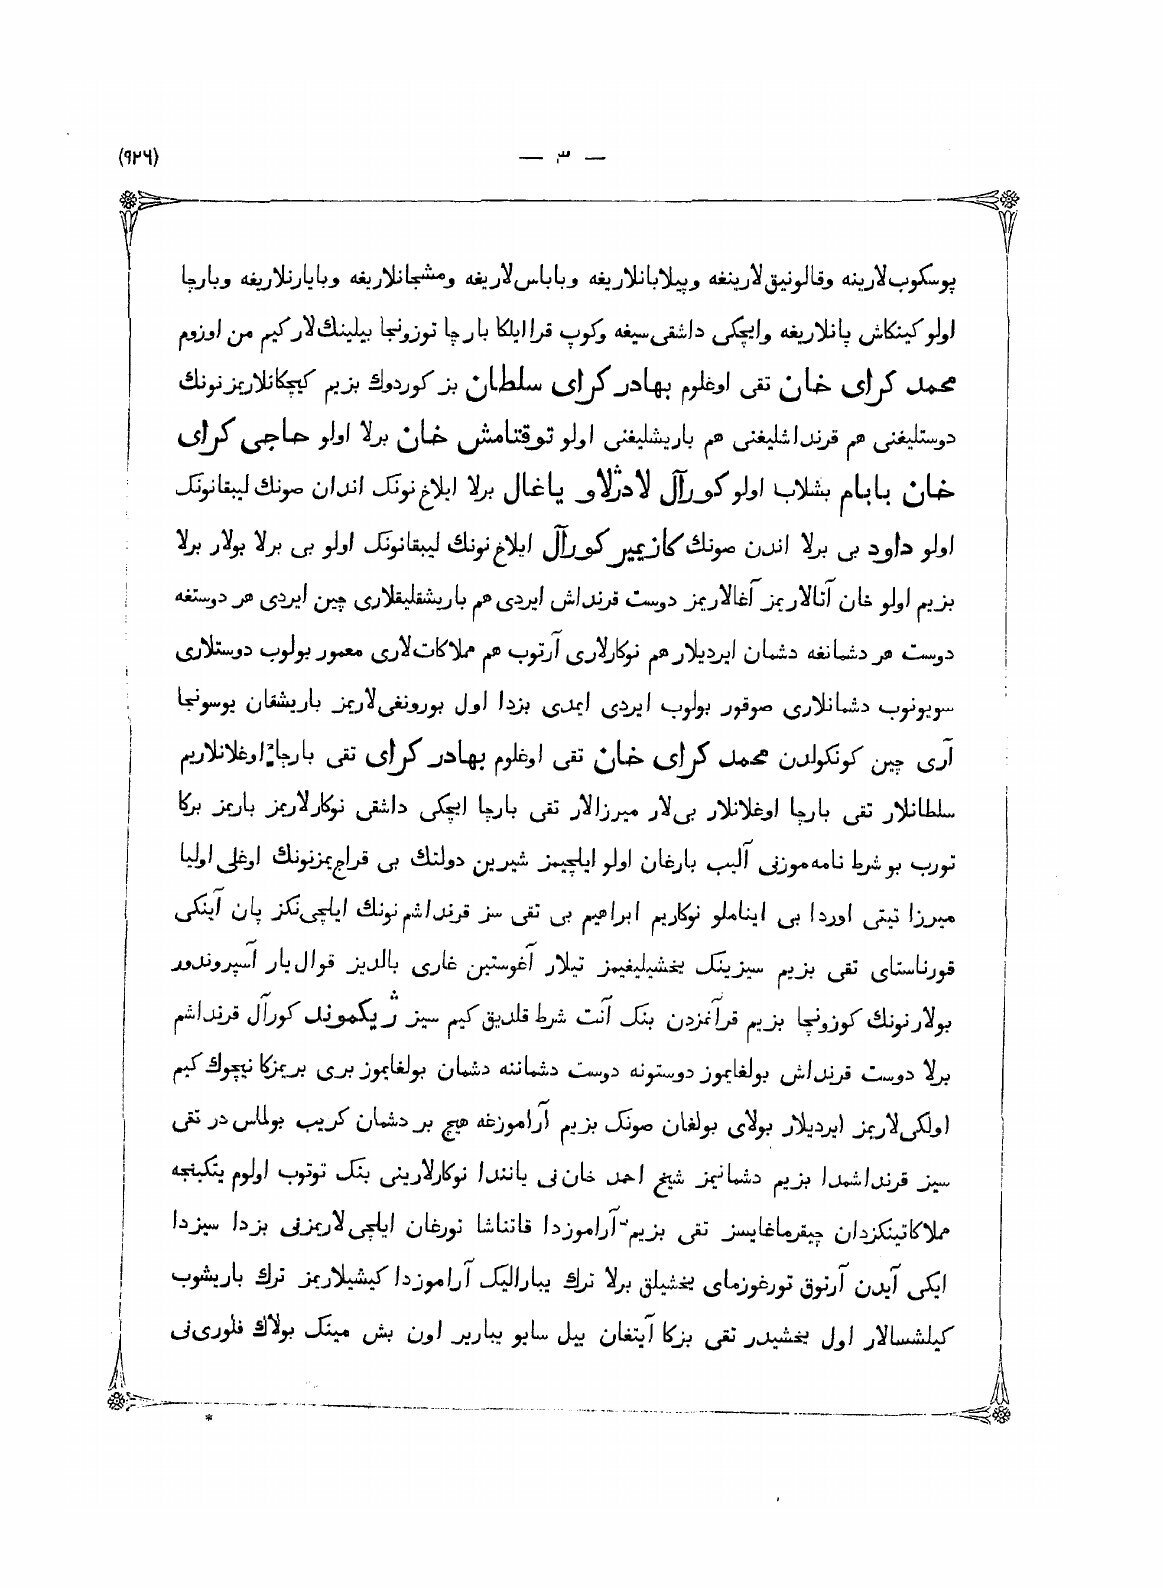 (٩٢٦)
— ٣ —
پوسكوب‌لارينه وقالونيق‌لارينغه وپيلابانلاريغه وباباس‌لاريغه ومشجانلاريغه وبايارنلاريغه وبارچا
اولو كينكاش پانلاريغه وايچكى داشقى‌سيغه وكوپ قرا ايلكا بارچا توزونجا بيلينك‌لار كيم من اوزوم
محمد كراى خان تقى اوغلوم بهادر كراى سلطان بز كوردوك بزيم كيچكانلاريمزنونك
دوستليغنى هم قرنداشليغنى هم باريشليغنى اولو توقتامش خان برلا اولو حاجى كراى
خان بابام بشلاب اولو كورآل لادژلاو ياغال برلا ايلاغ‌نونك اندان صونك ليبقانونك
اولو داود بى برلا اندن صونك كازيمير كورآل ايلاغ‌نونك ليبقانونك اولو بى برلا بولار برلا
بزيم اولو خان آتالاريمز آغالاريمز دوست قرنداش ايردى هم باريشقليقلارى چين ايردى هر دوستغه
دوست هر دشمانغه دشمان ايرديلار هم نوكارلارى آرتوب هم مملاكات‌لارى معمور بولوب دوستلارى
سويونوب دشمانلارى صوقور بولوب ايردى ايمدى بزدا اول بورونغى‌لاريمز باريشقان يوسونجا
آرى چين كونكولدن محمد كراى خان تقى اوغلوم بهادر كراى تقى بارچا اوغلانلاريم
سلطانلار تقى بارچا اوغلانلار بى‌لار ميرزالار تقى بارچا ايچكى داشقى نوكارلاريمز باريمز بركا
تورب بو شرط نامه‌موزنى آليب بارغان اولو ايلچيمز شيرين دولتك بى قراچمزنونك اوغلى اوليا
ميرزا تيتى اوردا بى ايناملو نوكاريم ابراهيم بى تقى سز قرنداشم‌نونك ايلچى‌نكز پان آينكى
قورناستاى تقى بزيم سيزينك يخشيليغيمز تيلار آغوستين غارى بالديز قوال‌يار آسپروندور
بولارنونك كوزونچا بزيم قرآنمزدن بنك آنت شرط قلديق كيم سيز ژيكموند كورآل قرنداشم
برلا دوست قرنداش بولغايموز دوستونه دوست دشماننه دشمان بولغايموز برى بريمزكا نيچوك كيم
اولكى‌لاريمز ايرديلار بولاى بولغان صونك بزيم آراموزغه هيچ بر دشمان كريب بولماس در تقى
سيز قرنداشمدا بزيم دشمانيمز شيخ احمد خان‌نى يانندا نوكارلارينى بنك توتوب اولوم يتكينجه
مملاكاتينكزدان چيقرماغايسز تقى بزيم آراموزدا قاتناشا تورغان ايلچى‌لاريمزنى بزدا سيزدا
ايكى آيدن آرتوق تورغوزماى يخشيلق برلا ترك يبارالیک آراموزدا كيشيلاريمز ترك باريشوب
كيلشسالار اول يخشيدر تقى بزكا آيتغان ييل سايو يبارير اون بش مينك بولاك فلورى‌نى
*